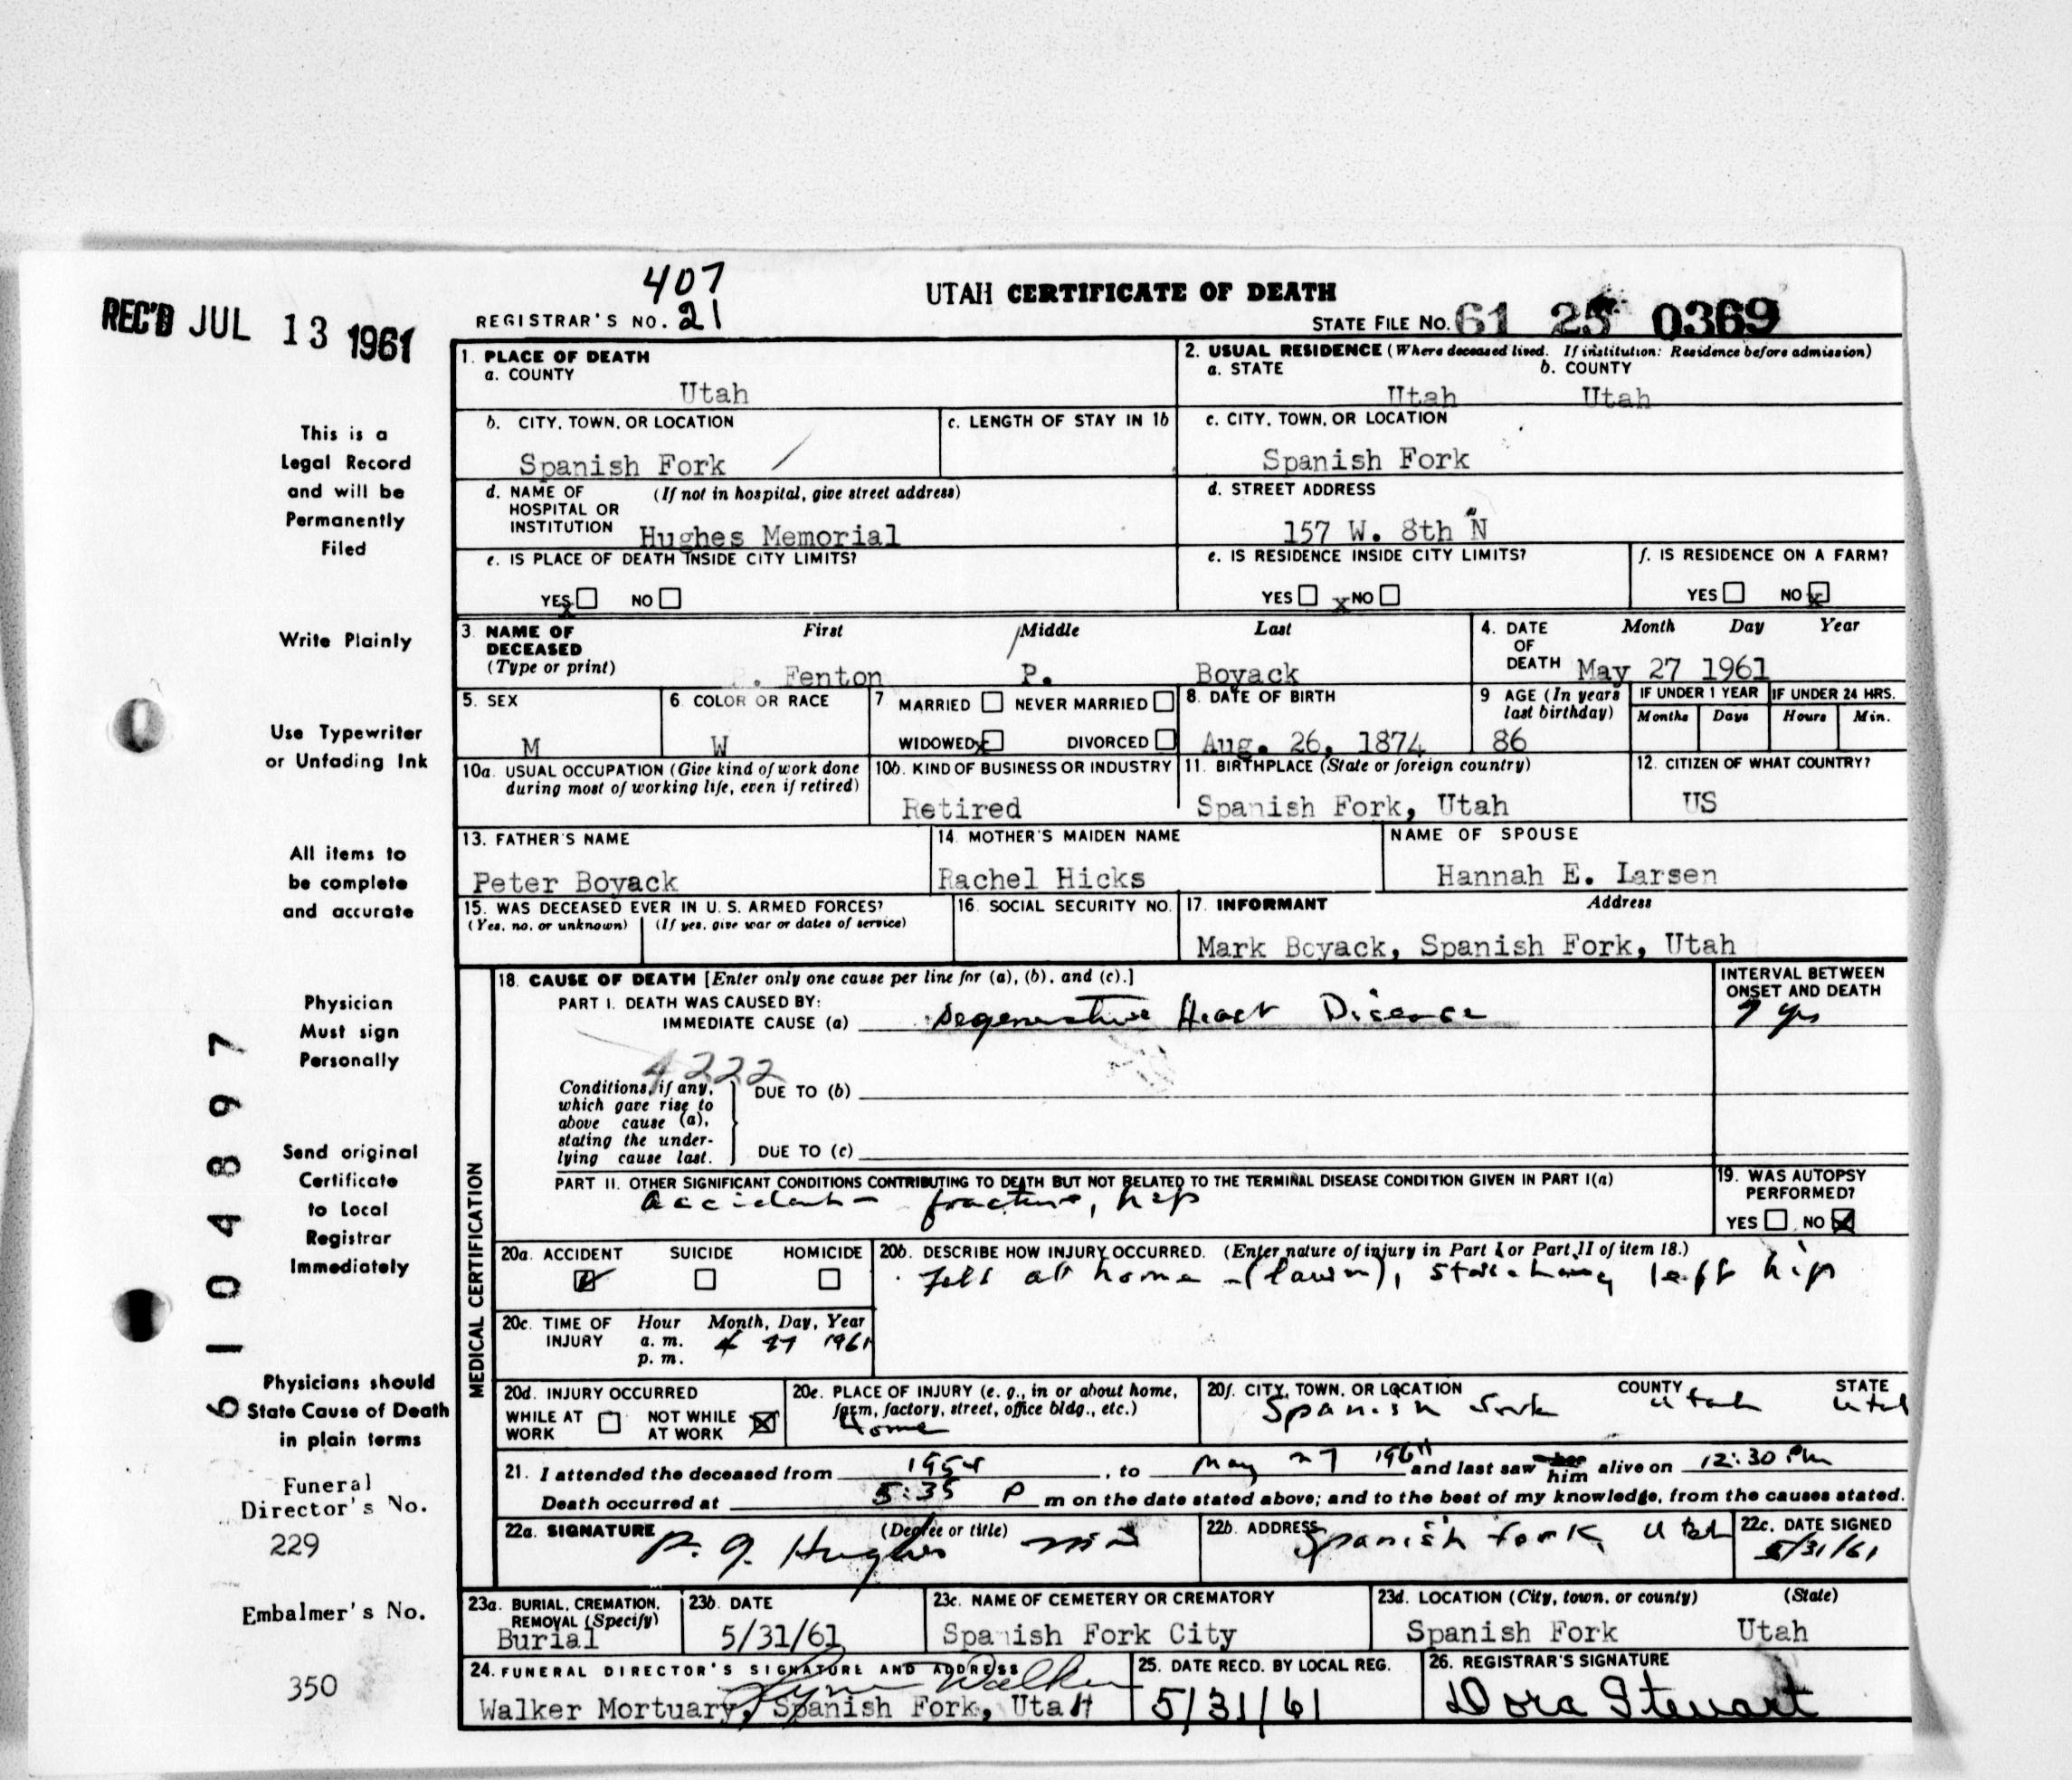 REC'D JUL 13 1961
407
REGISTRAR'S NO. 21
UTAH CERTIFICATE OF DEATH
STATE FILE No. 61 25 0369
This is a
Legal Record
and will be
Permanently
Filed
Write Plainly
Use Typewriter
or Unfading Ink
All items to
be complete
and accurate
Physician
Must sign
Personally
Send original
Certificate
to Local
Registrar
Immediately
Physicians should
State Cause of Death
in plain terms
Funeral
Director's No.
229
Embalmer's No.
350
6104897
1. PLACE OF DEATH
a. COUNTY
Utah
2. USUAL RESIDENCE (Where deceased lived. If institution: Residence before admission)
a. STATE b. COUNTY
Utah Utah
b. CITY, TOWN, OR LOCATION
Spanish Fork
c. LENGTH OF STAY IN 1b
c. CITY, TOWN, OR LOCATION
Spanish Fork
d. NAME OF (If not in hospital, give street address)
HOSPITAL OR
INSTITUTION Hughes Memorial
d. STREET ADDRESS
157 W. 8th N
e. IS PLACE OF DEATH INSIDE CITY LIMITS?
YES x NO
e. IS RESIDENCE INSIDE CITY LIMITS?
YES x NO
f. IS RESIDENCE ON A FARM?
YES NO x
3. NAME OF First Middle Last
DECEASED
(Type or print) Fenton P. Boyack
4. DATE Month Day Year
OF
DEATH May 27 1961
5. SEX
M
6. COLOR OR RACE
W
7 MARRIED NEVER MARRIED
WIDOWED x DIVORCED
8. DATE OF BIRTH
Aug. 26, 1874
9 AGE (In years
last birthday)
86
IF UNDER 1 YEAR
Months Days
IF UNDER 24 HRS.
Hours Min.
10a. USUAL OCCUPATION (Give kind of work done
during most of working life, even if retired)
10b. KIND OF BUSINESS OR INDUSTRY
Retired
11. BIRTHPLACE (State or foreign country)
Spanish Fork, Utah
12. CITIZEN OF WHAT COUNTRY?
US
13. FATHER'S NAME
Peter Boyack
14. MOTHER'S MAIDEN NAME
Rachel Hicks
NAME OF SPOUSE
Hannah E. Larsen
15. WAS DECEASED EVER IN U. S. ARMED FORCES?
(Yes, no, or unknown) (If yes, give war or dates of service)
16. SOCIAL SECURITY NO.
17. INFORMANT Address
Mark Boyack, Spanish Fork, Utah
MEDICAL CERTIFICATION
18. CAUSE OF DEATH [Enter only one cause per line for (a), (b), and (c).]
PART I. DEATH WAS CAUSED BY:
IMMEDIATE CAUSE (a) Degenerative Heart Disease
INTERVAL BETWEEN
ONSET AND DEATH
7 yrs
4222
Conditions, if any,
which gave rise to
above cause (a),
stating the under-
lying cause last.
DUE TO (b)
DUE TO (c)
PART II. OTHER SIGNIFICANT CONDITIONS CONTRIBUTING TO DEATH BUT NOT RELATED TO THE TERMINAL DISEASE CONDITION GIVEN IN PART I(a)
accident - fracture, hip
19. WAS AUTOPSY
PERFORMED?
YES NO x
20a. ACCIDENT SUICIDE HOMICIDE
20b. DESCRIBE HOW INJURY OCCURRED. (Enter nature of injury in Part I or Part II of item 18.)
Fell at home - (lawn), left hip
20c. TIME OF Hour Month, Day, Year
INJURY a. m. 4 27 1961
p. m.
20d. INJURY OCCURRED
WHILE AT NOT WHILE x
WORK AT WORK
20e. PLACE OF INJURY (e. g., in or about home,
farm, factory, street, office bldg., etc.)
Home
20f. CITY, TOWN, OR LOCATION COUNTY STATE
Spanish Fork Utah Utah
21. I attended the deceased from 1954, to May 27 1961 and last saw her him alive on 12:30 PM
Death occurred at 5:35 P m on the date stated above; and to the best of my knowledge, from the causes stated.
22a. SIGNATURE (Degree or title)
Hughes MD
22b. ADDRESS
Spanish Fork, Utah
22c. DATE SIGNED
5/31/61
23a. BURIAL, CREMATION,
REMOVAL (Specify)
Burial
23b. DATE
5/31/61
23c. NAME OF CEMETERY OR CREMATORY
Spanish Fork City
23d. LOCATION (City, town, or county) (State)
Spanish Fork Utah
24. FUNERAL DIRECTOR'S SIGNATURE AND ADDRESS
Walker
Walker Mortuary, Spanish Fork, Utah
25. DATE RECD. BY LOCAL REG.
5/31/61
26. REGISTRAR'S SIGNATURE
Dora Stewart